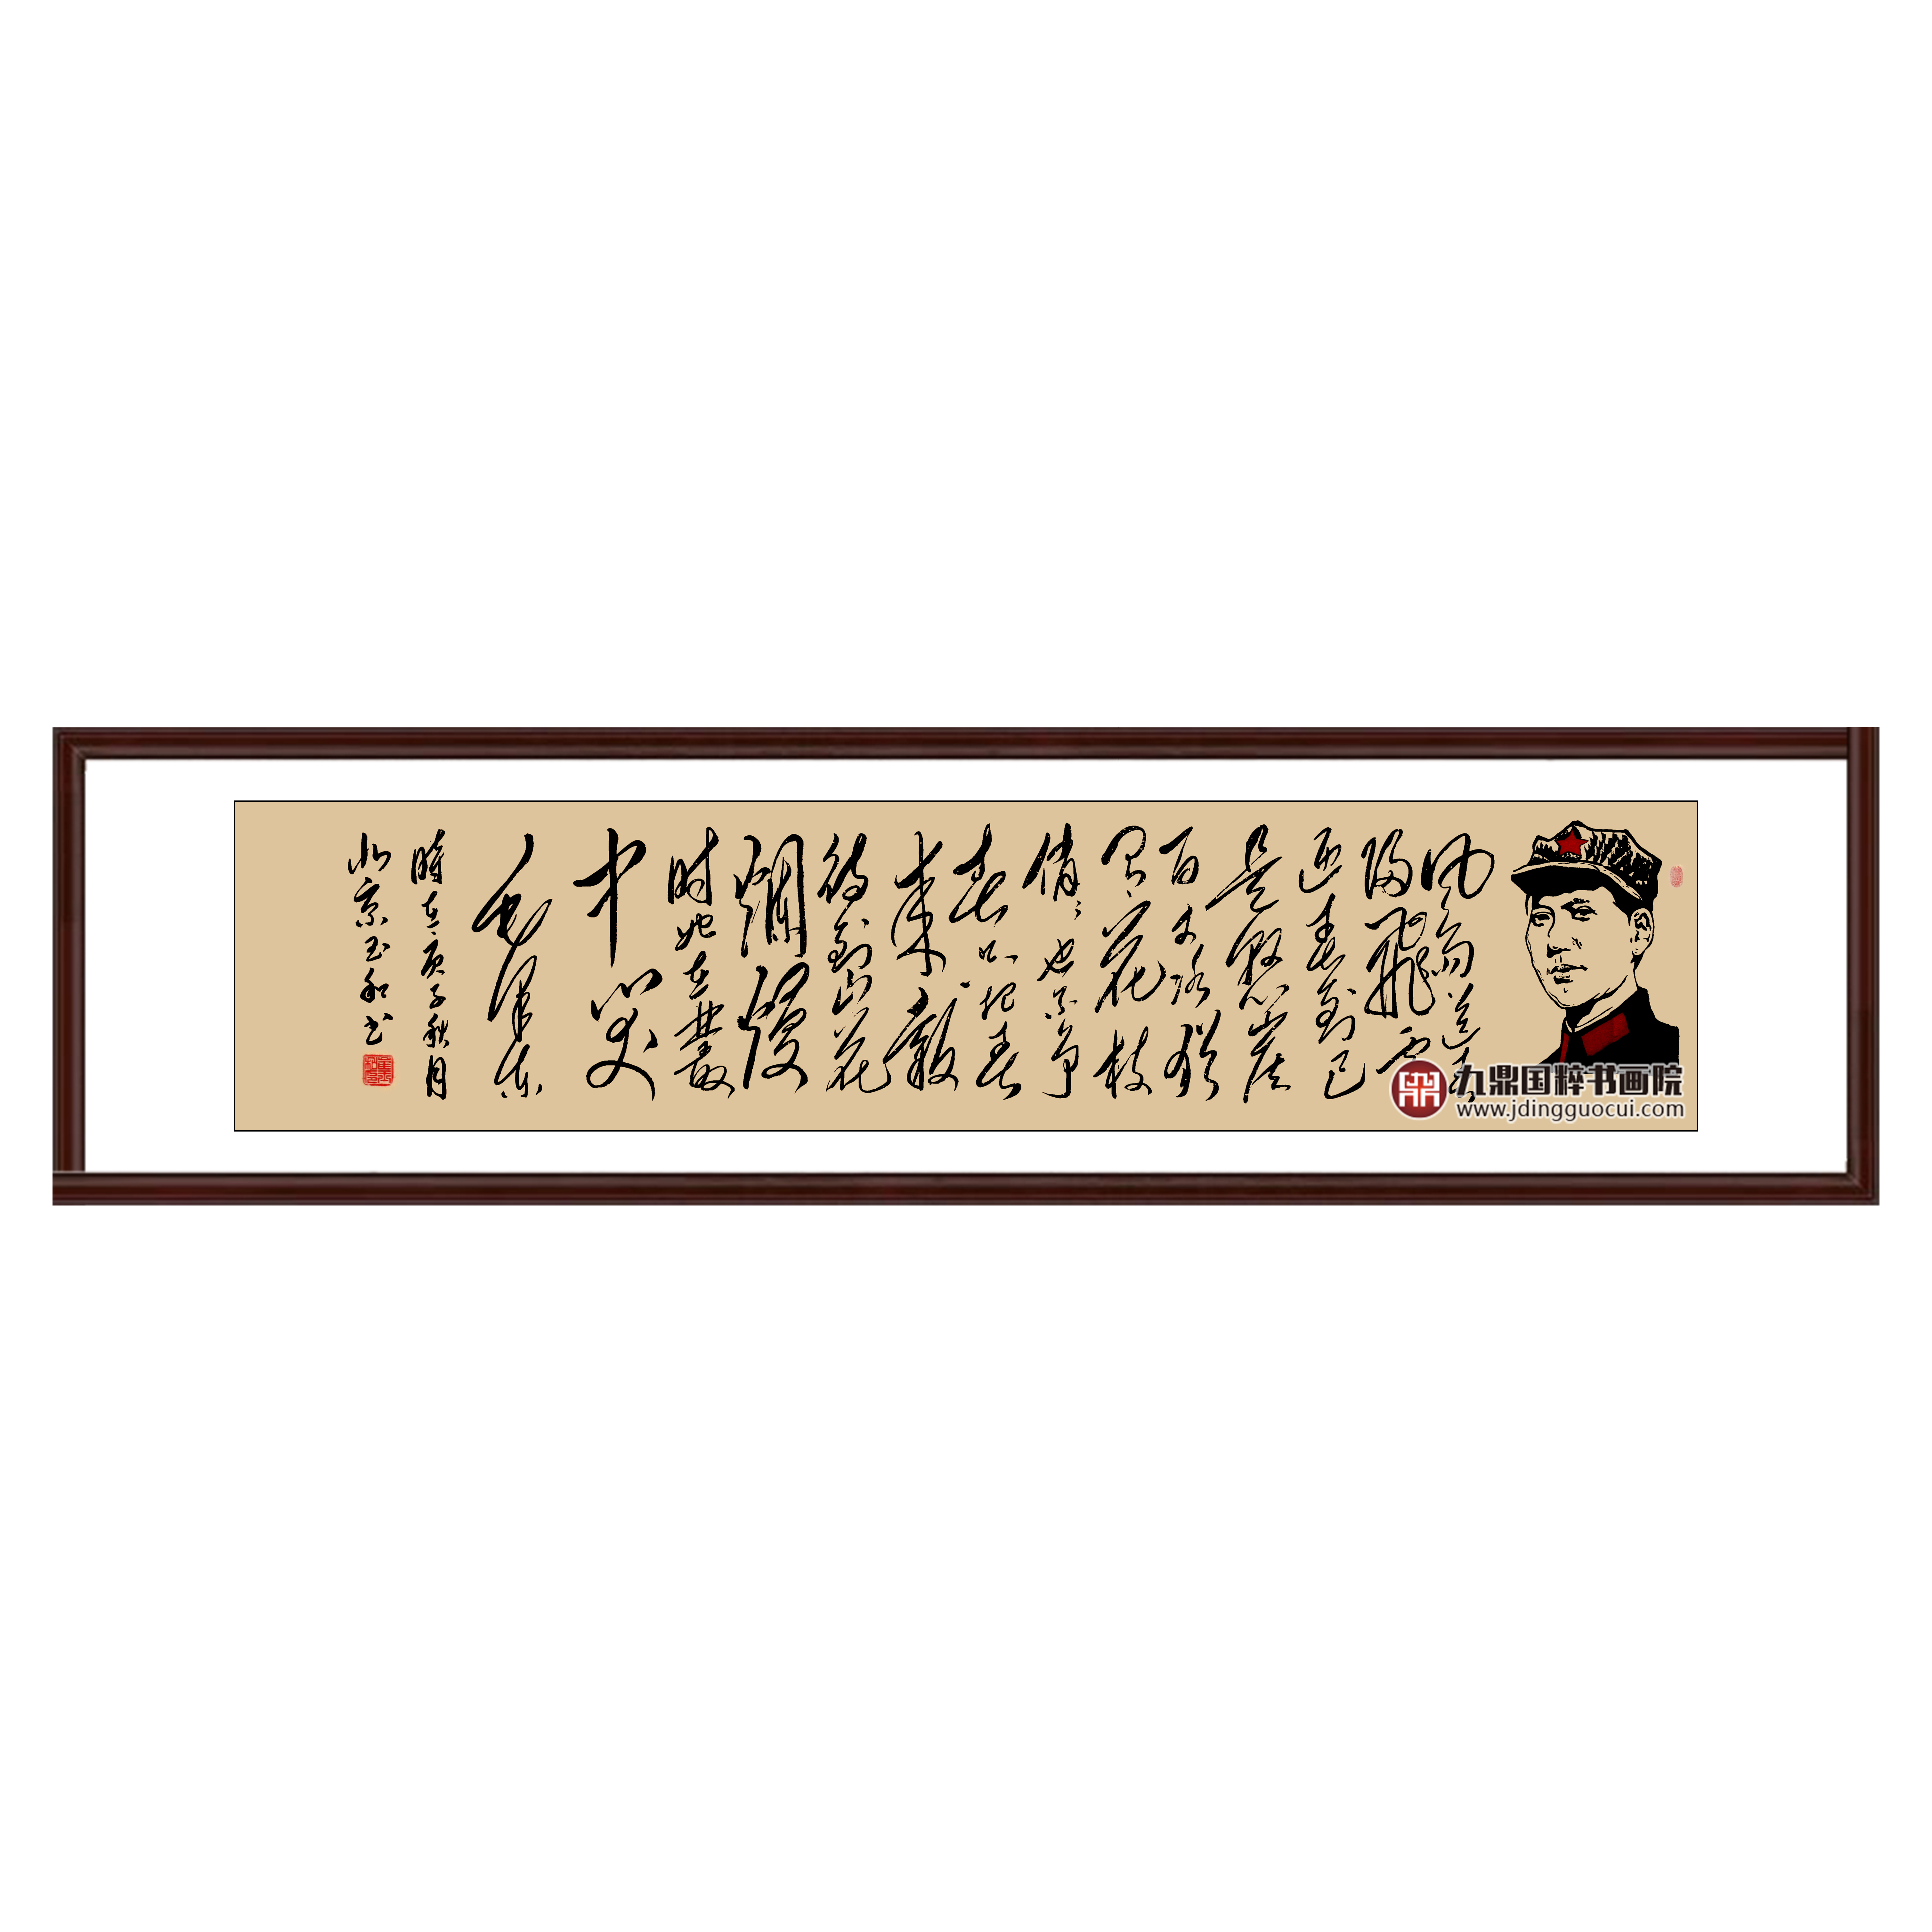 风雨送春
归飞雪
迎春到已
是悬崖
百丈冰犹
有花枝
俏俏也不争
春只把春
来报
待到山花
烂漫
时她在丛
中笑
毛泽东
时在庚子秋月
北京玉和书
九鼎国粹书画院
www.jdingguocui.com